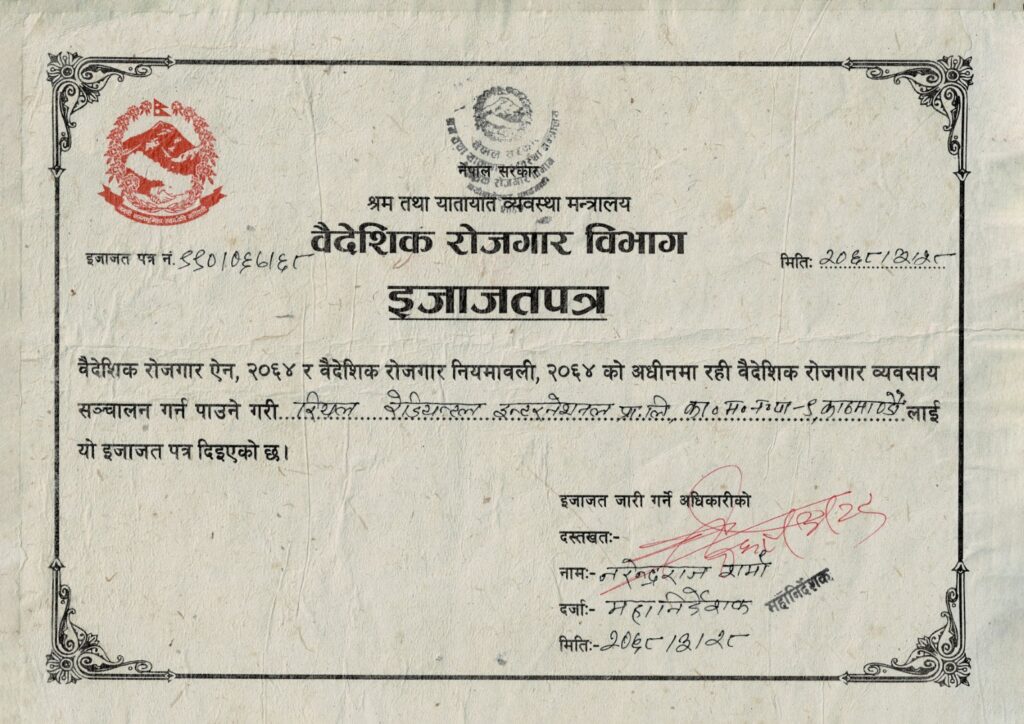 नेपाल सरकार
श्रम तथा यातायात व्यवस्था मन्त्रालय
वैदेशिक रोजगार विभाग
इजाजत पत्र नं. ९९०।०६७।६८
मितिः २०६८।३।२८
इजाजतपत्र
वैदेशिक रोजगार ऐन, २०६४ र वैदेशिक रोजगार नियमावली, २०६४ को अधीनमा रही वैदेशिक रोजगार व्यवसाय
सञ्चालन गर्न पाउने गरी रियल रेडियन्स इन्टरनेशनल प्रा.लि, का.म.न.पा-९, काठमाण्डौं लाई
यो इजाजत पत्र दिइएको छ।
इजाजत जारी गर्ने अधिकारीको
दस्तखतः-
नामः- नरेन्द्रराज शर्मा
दर्जाः- महानिर्देशक
महानिर्देशक
मितिः- २०६८।३।२८